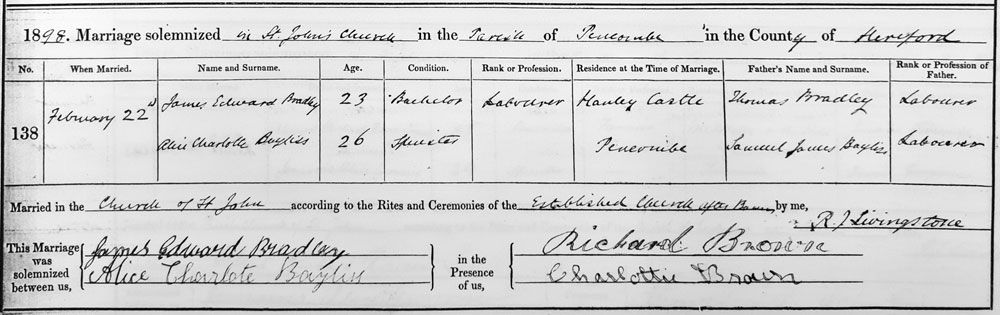 1898. Marriage solemnized in St John's Church in the Parish of Pencombe in the County of Hereford
No. When Married. Name and Surname. Age. Condition. Rank or Profession. Residence at the Time of Marriage. Father's Name and Surname. Rank or Profession of Father.
138 February 22d James Edward Bradley 23 Bachelor Labourer Hanley Castle Thomas Bradley Labourer
Alice Charlotte Bayliss 26 Spinster Pencombe Samuel James Bayliss Labourer
Married in the Church of St John according to the Rites and Ceremonies of the Established Church after Banns, by me,
R J Livingstone
This Marriage was solemnized between us, James Edward Bradley in the Presence of us, Richard Brown
Alice Charlote Bayliss Charlottie Brown